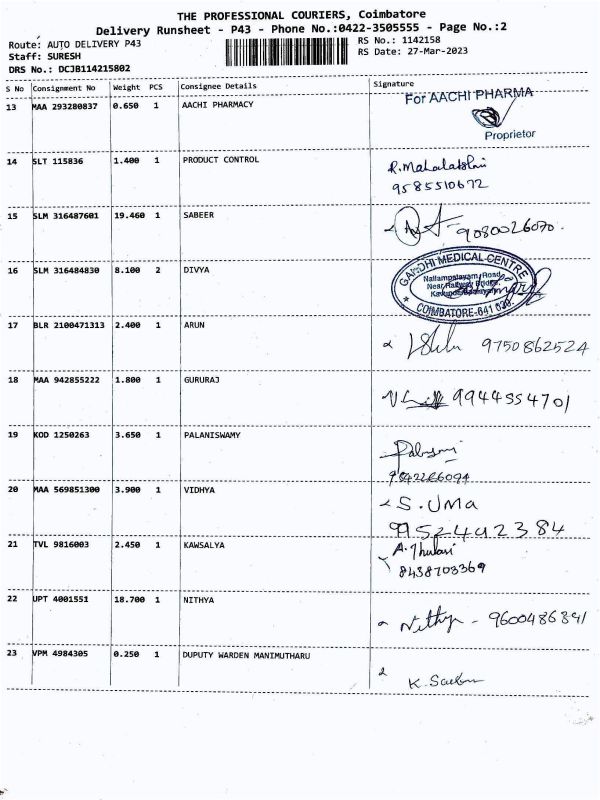 THE PROFESSIONAL COURIERS, Coimbatore
Delivery Runsheet - P43 - Phone No.:0422-3505555 - Page No.:2
Route: AUTO DELIVERY P43
RS No.: 1142158
Staff: SURESH
RS Date: 27-Mar-2023
DRS No.: DCJB114215802
S No Consignment No Weight PCS Consignee Details Signature
13 MAA 293280837 0.650 1 AACHI PHARMACY
For AACHI PHARMA
Proprietor
14 SLT 115836 1.400 1 PRODUCT CONTROL
R. Mahalakshmi
9585510672
15 SLM 316487601 19.460 1 SABEER
9080026070.
16 SLM 316484830 8.100 2 DIVYA
GANDHI MEDICAL CENTRE
Nallampalayam Road,
Near Railway Bridge,
COIMBATORE-641
17 BLR 2100471313 2.400 1 ARUN
9750862524
18 MAA 942855222 1.800 1 GURURAJ
9944554701
19 KOD 1250263 3.650 1 PALANISWAMY
20 MAA 569851300 3.900 1 VIDHYA
S. UMA
9952442384
21 TVL 9816003 2.450 1 KAWSALYA
A. Thulasi
8438703369
22 UPT 4001551 18.700 1 NITHYA
Nithya - 9600486891
23 VPM 4984305 0.250 1 DUPUTY WARDEN MANIMUTHARU